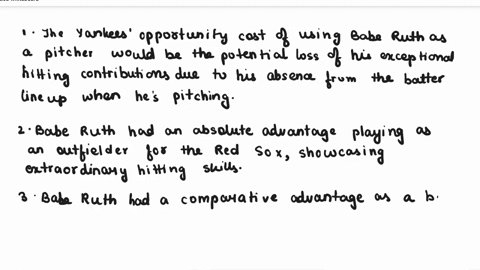 1. The Yankees' opportunity cost of using Babe Ruth as
a pitcher would be the potential loss of his exceptional
hitting contributions due to his absence from the batter
lineup when he's pitching.
2. Babe Ruth had an absolute advantage playing as
an outfielder for the Red Sox, showcasing
extraordinary hitting skills.
3. Babe Ruth had a comparative advantage as a b.